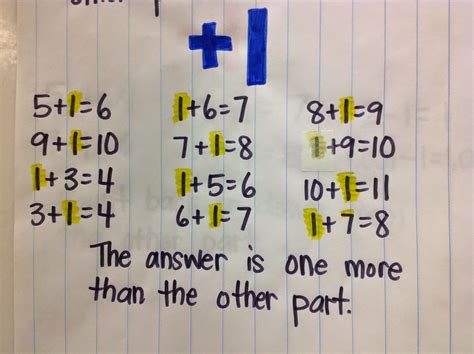 +1
5+1=6 1+6=7 8+1=9
9+1=10 7+1=8 1+9=10
1+3=4 1+5=6 10+1=11
3+1=4 6+1=7 1+7=8
The answer is one more
than the other part.